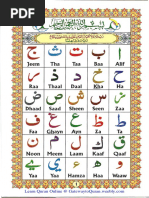 بسم الله الرحمن الرحيم
ا ب ت ث ج
Jeem Tha Taa Baa Alif
ح خ د ذ ر
Raa Thaal Daal Khaa Haa
ز س ش ص ض
Dhaad Saad Sheen Seen Zaa
ط ظ ع غ ف
Faa Ghayn Ayn Zaa Taa
ق ك ل م ن
Noon Meem Laam Kaaf Qaaf
و ه ء ي ے
Yaa Yaa Hamza Haa Waaw
Learn Quran Online @ GatewaytoQuran.weebly.com